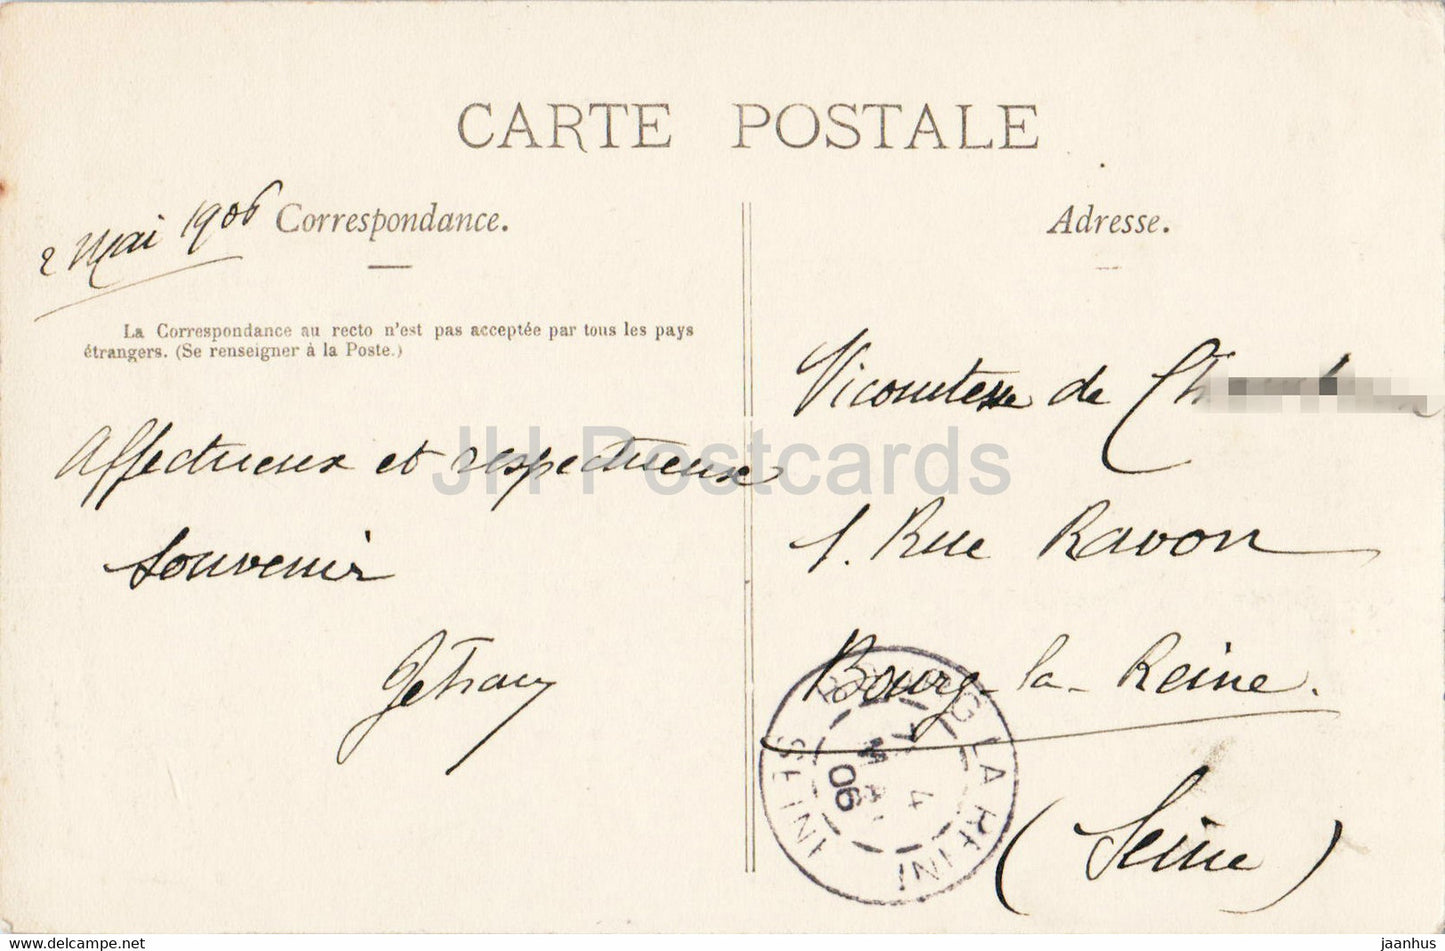 CARTE POSTALE
2 Mai 1906
Correspondance.
La Correspondance au recto n'est pas acceptée par tous les pays
étrangers. (Se renseigner à la Poste.)
Affectueux et respectueux
souvenir
Adresse.
Vicomtesse de
1. Rue Ravon
Bourg-la-Reine.
(Seine)
BOURG LA REINE
SEINE
4
MAI
06
JH Postcards
jaanhus @ delcampe.net